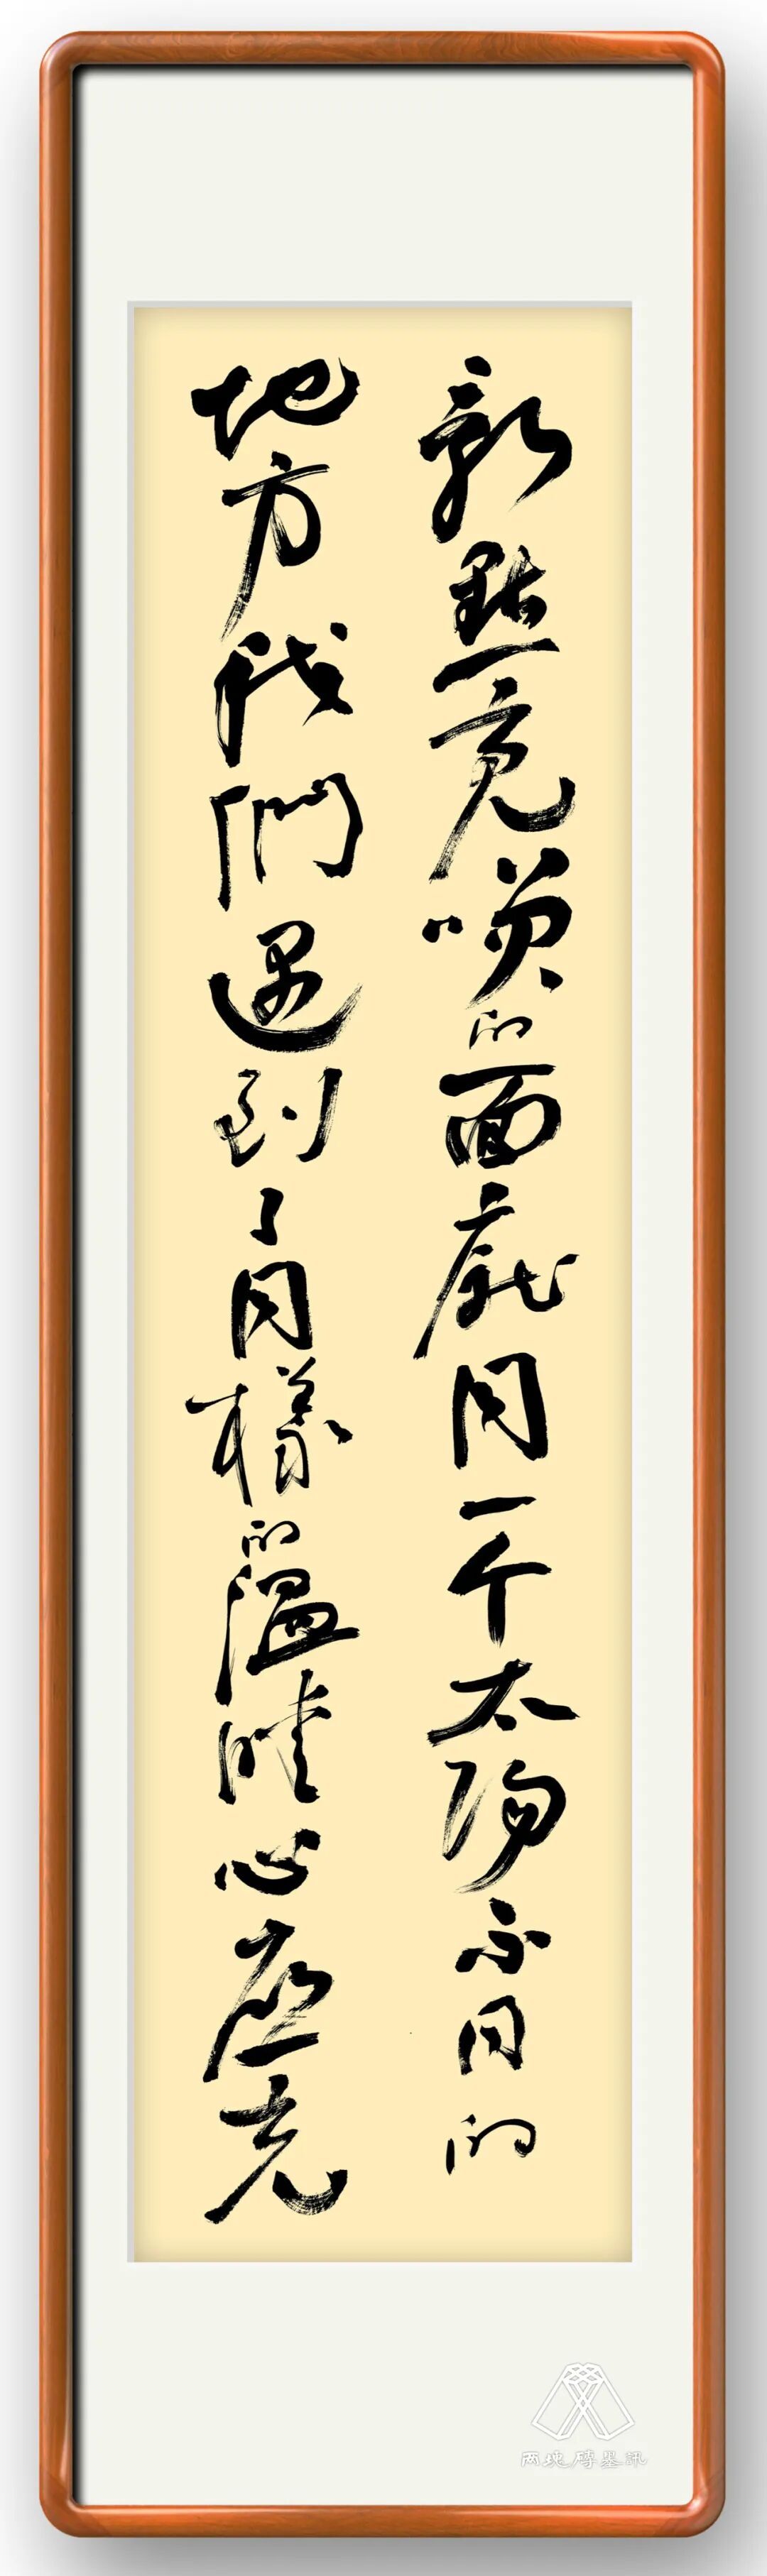 點亮的面龐同一个太陽不同的
地方我們遇到了同樣的溫暖心
两塊磚墨訊